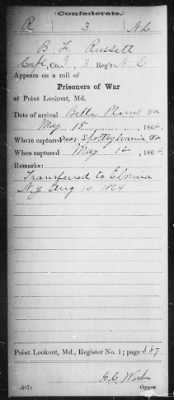 Confederate.
R 3 N.C.
B. L. Russell
Capt, Co. I, 3 Reg't N. C
Appears on a roll of
Prisoners of War
at Point Lookout, Md.
Date of arrival Belle Plains Va
May 18, 1864
Where captured Near Spottsylvania, Va
When captured May 12, 1864
Remarks:
Transferred to Elmira
N.Y Aug 10 1864
Point Lookout, Md., Register No. 1; page 387
Copyist.